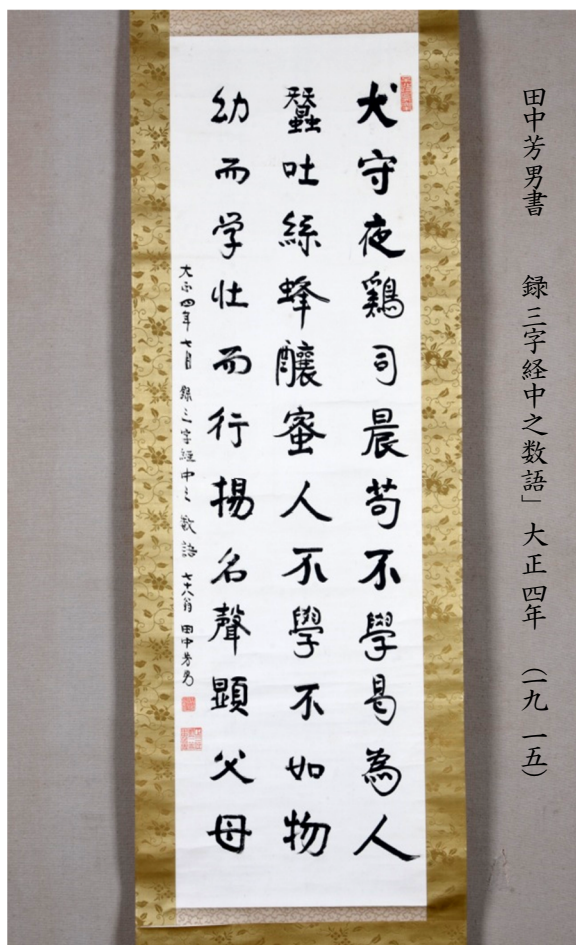 田中芳男書　録三字経中之数語」大正四年 (一九一五)
犬守夜鶏司晨苟不學曷為人
蠶吐絲蜂釀蜜人不學不如物
幼而学壮而行揚名聲顕父母
大正四年七月 録三字経中之数語 七十八翁 田中芳男